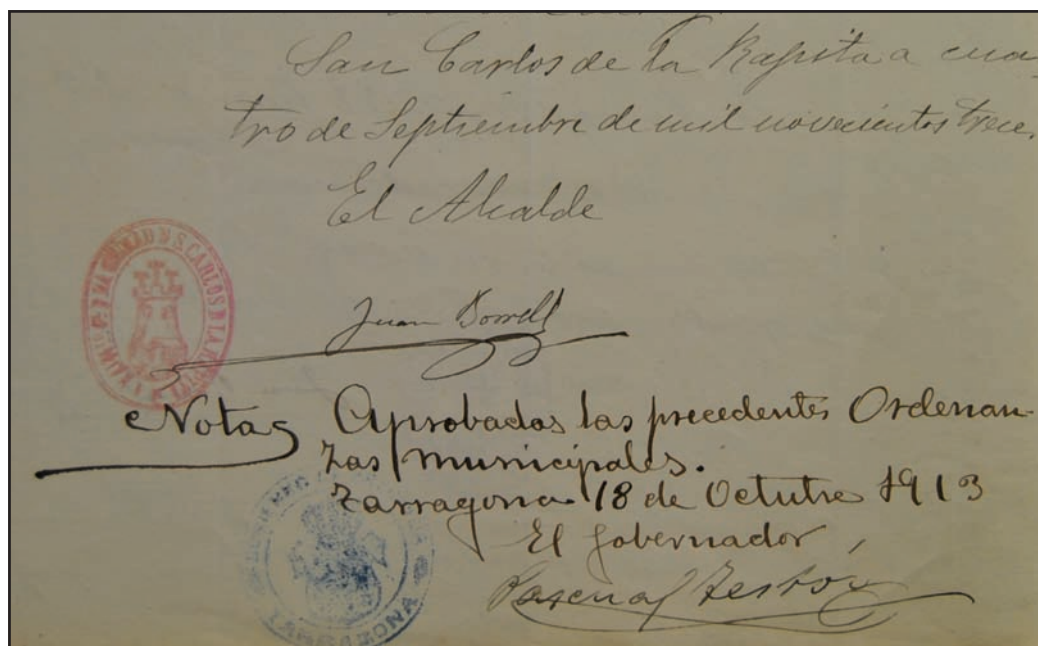 San Carlos de la Rapita a cua-
tro de Septiembre de mil novecientos trece.
El Alcalde
Juan Borrell
Nota Aprobadas las precedentes Ordenan-
zas municipales.
Tarragona 18 de Octubre 1913
El Gobernador,
Pascual Testor
S. CARLOS DE LA RAPITA
TARRAGONA